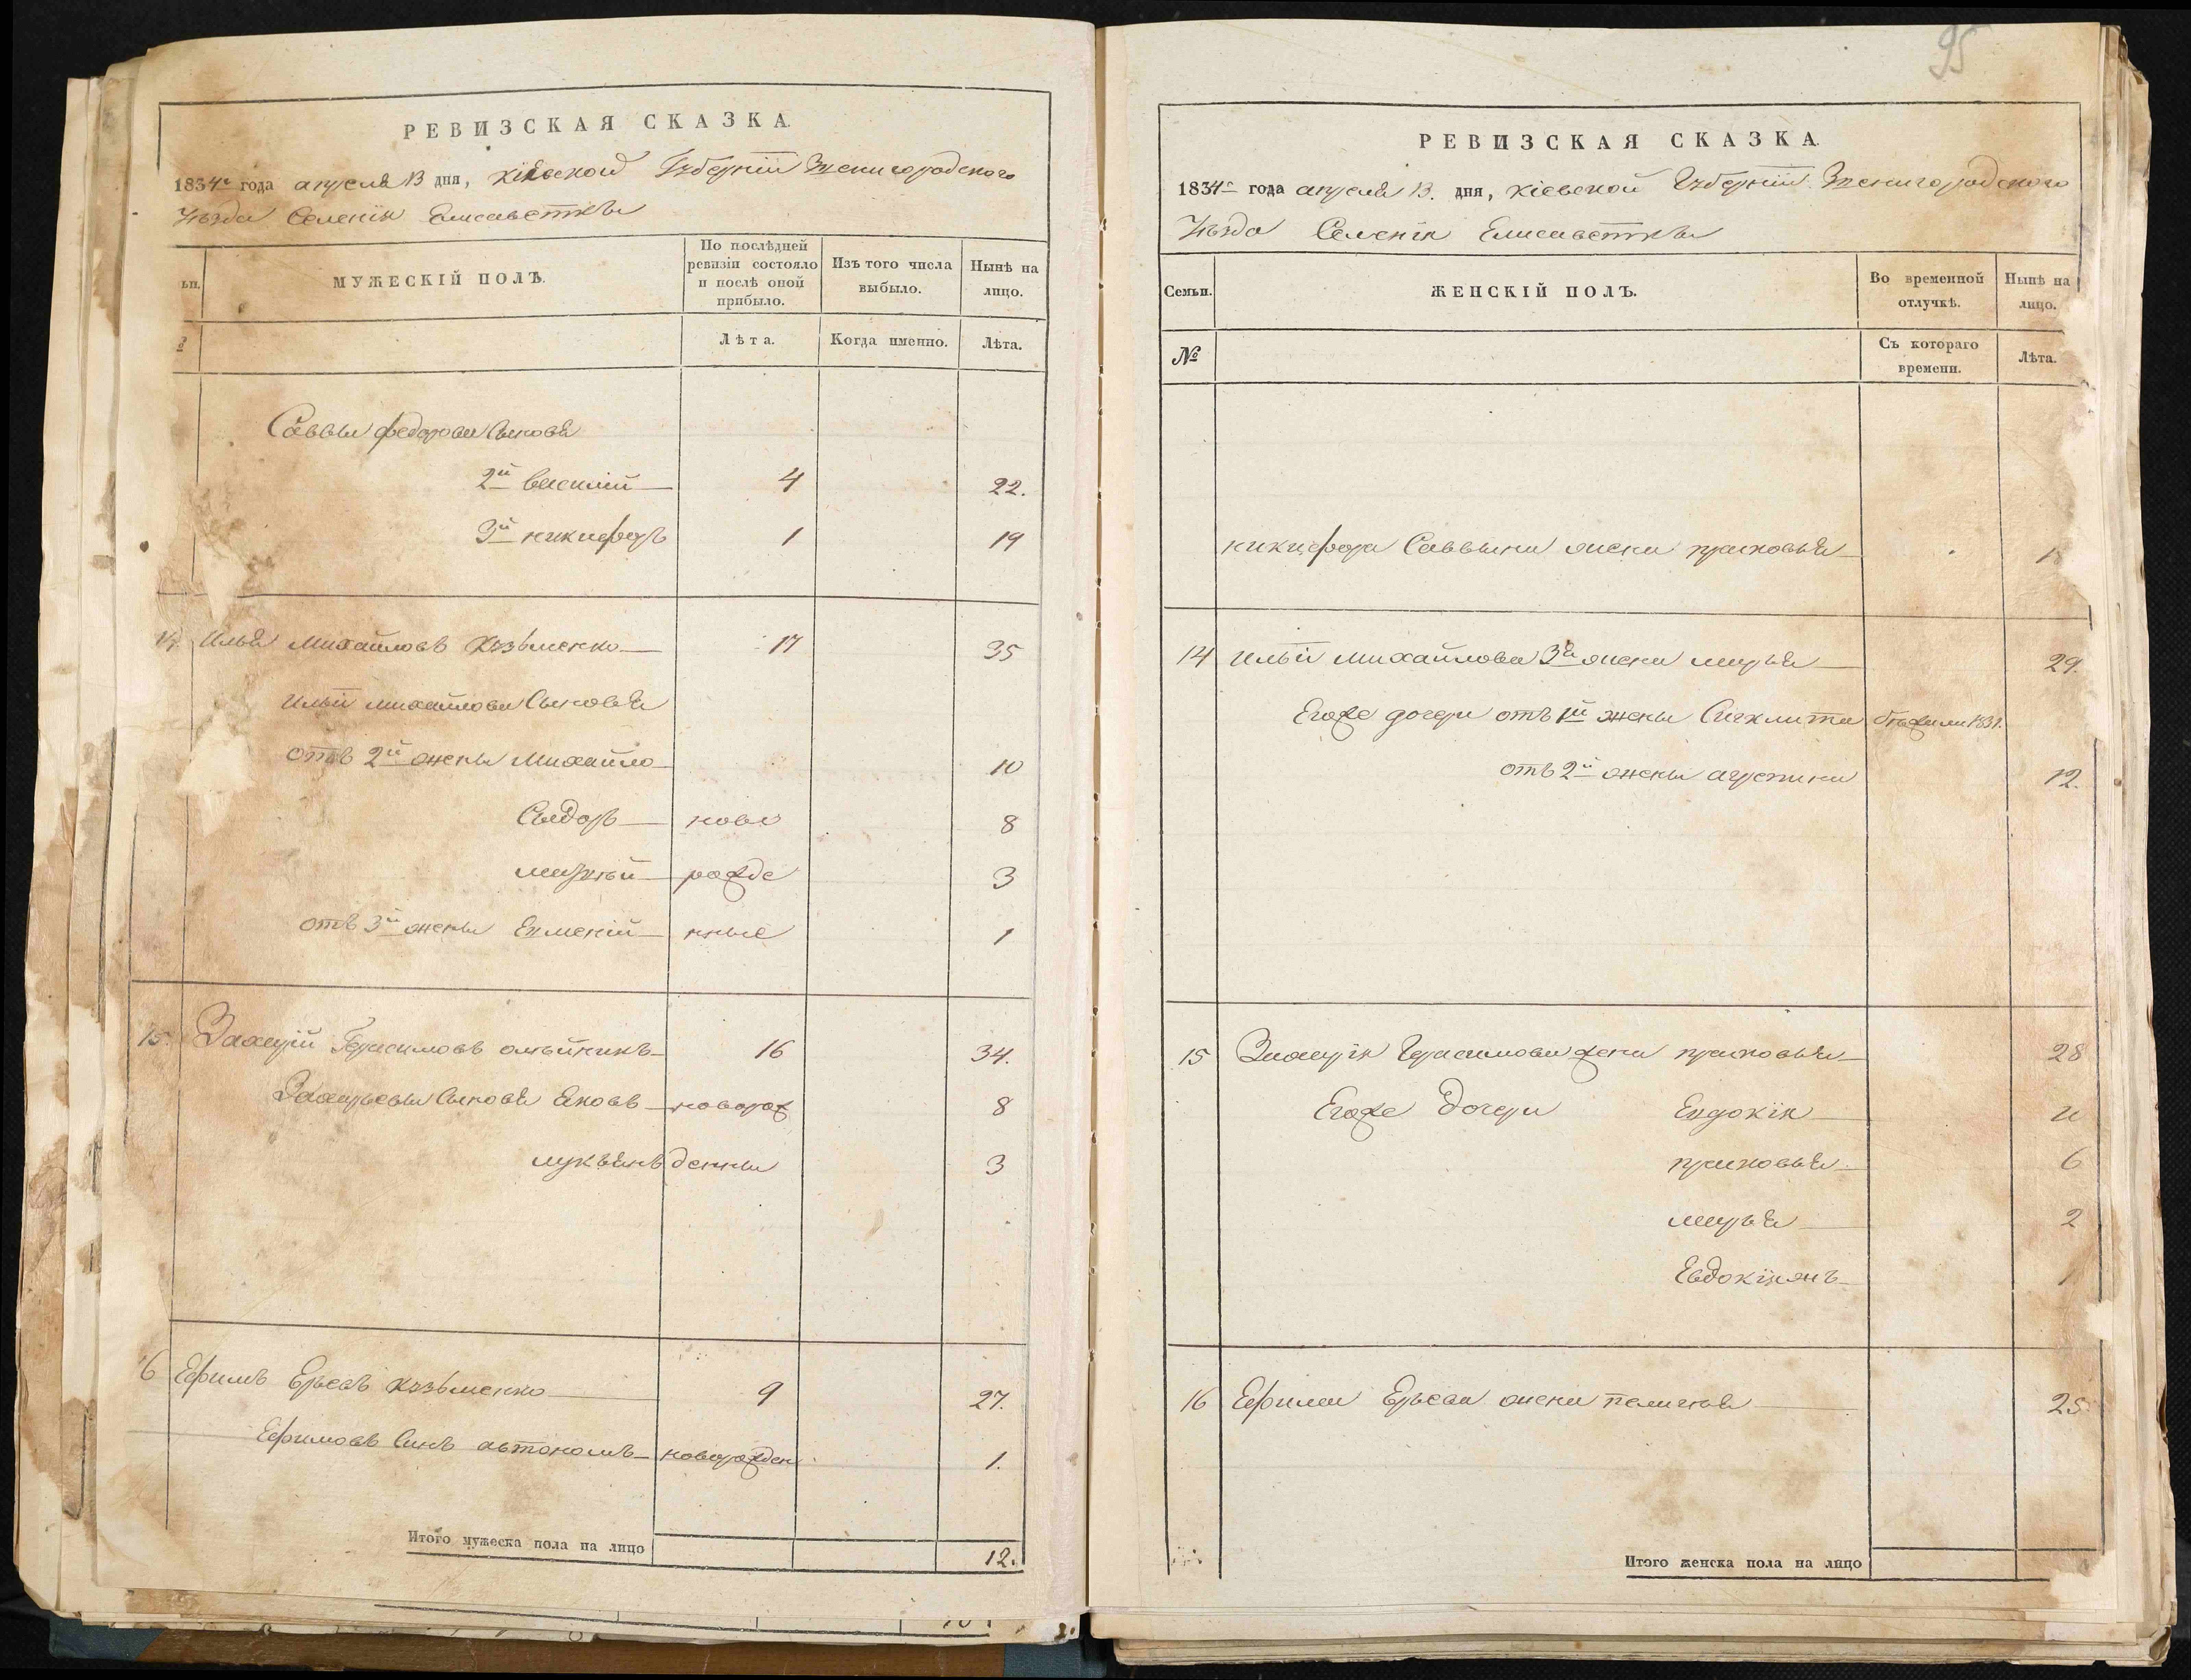 95
РЕВИЗСКАЯ СКАЗКА.
1834го года апреля 13 дня, Кіевской Губерніи Звенигородского
Уѣзда Селенія Елисаветки
ьи.
МУЖЕСКІЙ ПОЛЪ.
По послѣдней ревизіи состояло и послѣ оной прибыло.
Изъ того числа выбыло.
Нынѣ на лицо.
Лѣта.
Когда именно.
Лѣта.
Саввы Федорова Сыновя
2й Василій 4 22.
3й никифоръ 1 19
14. Илья Михайловъ Кузьменко 17 35
Ильи Михайлова Сыновья
отъ 2й жены Михайло 10
Сыдоръ ново 8
рожде 3
отъ 3й жены нные 1
15 Захарій Герасимовъ олѣйникъ 16 34.
Захарьевы Сыновя Яковъ новорож 8
лукъянъ денны 3
6 Ефимъ Кузьменко 9 27.
Ефимовъ Синъ автономъ новорожден 1.
Итого мужеска пола на лицо 12.
РЕВИЗСКАЯ СКАЗКА.
1834го года апреля 13. дня, Кіевской Губерніи Звенигородского
Уѣзда Селенія Елисаветки
Семьи.
ЖЕНСКІЙ ПОЛЪ.
Во временной отлучкѣ.
Нынѣ на лицо.
№
Съ котораго времени.
Лѣта.
никифора Саввина жена прасковья
14 Ильи Михайлова 3я жена марья 29.
Егоже дочери отъ 1й жены 1831.
отъ 2й жены агрепина 12.
15 Захарія Герасимова жена прасковья 28
Егоже Дочери Евдокія
прасковья 6
марья 2
1
16 Ефима жена пелагея 25.
Итого женска пола на лицо